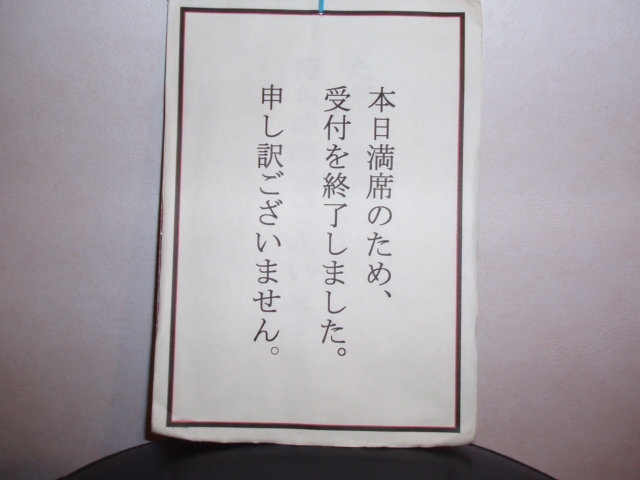 本日満席のため、
受付を終了しました。
申し訳ございません。